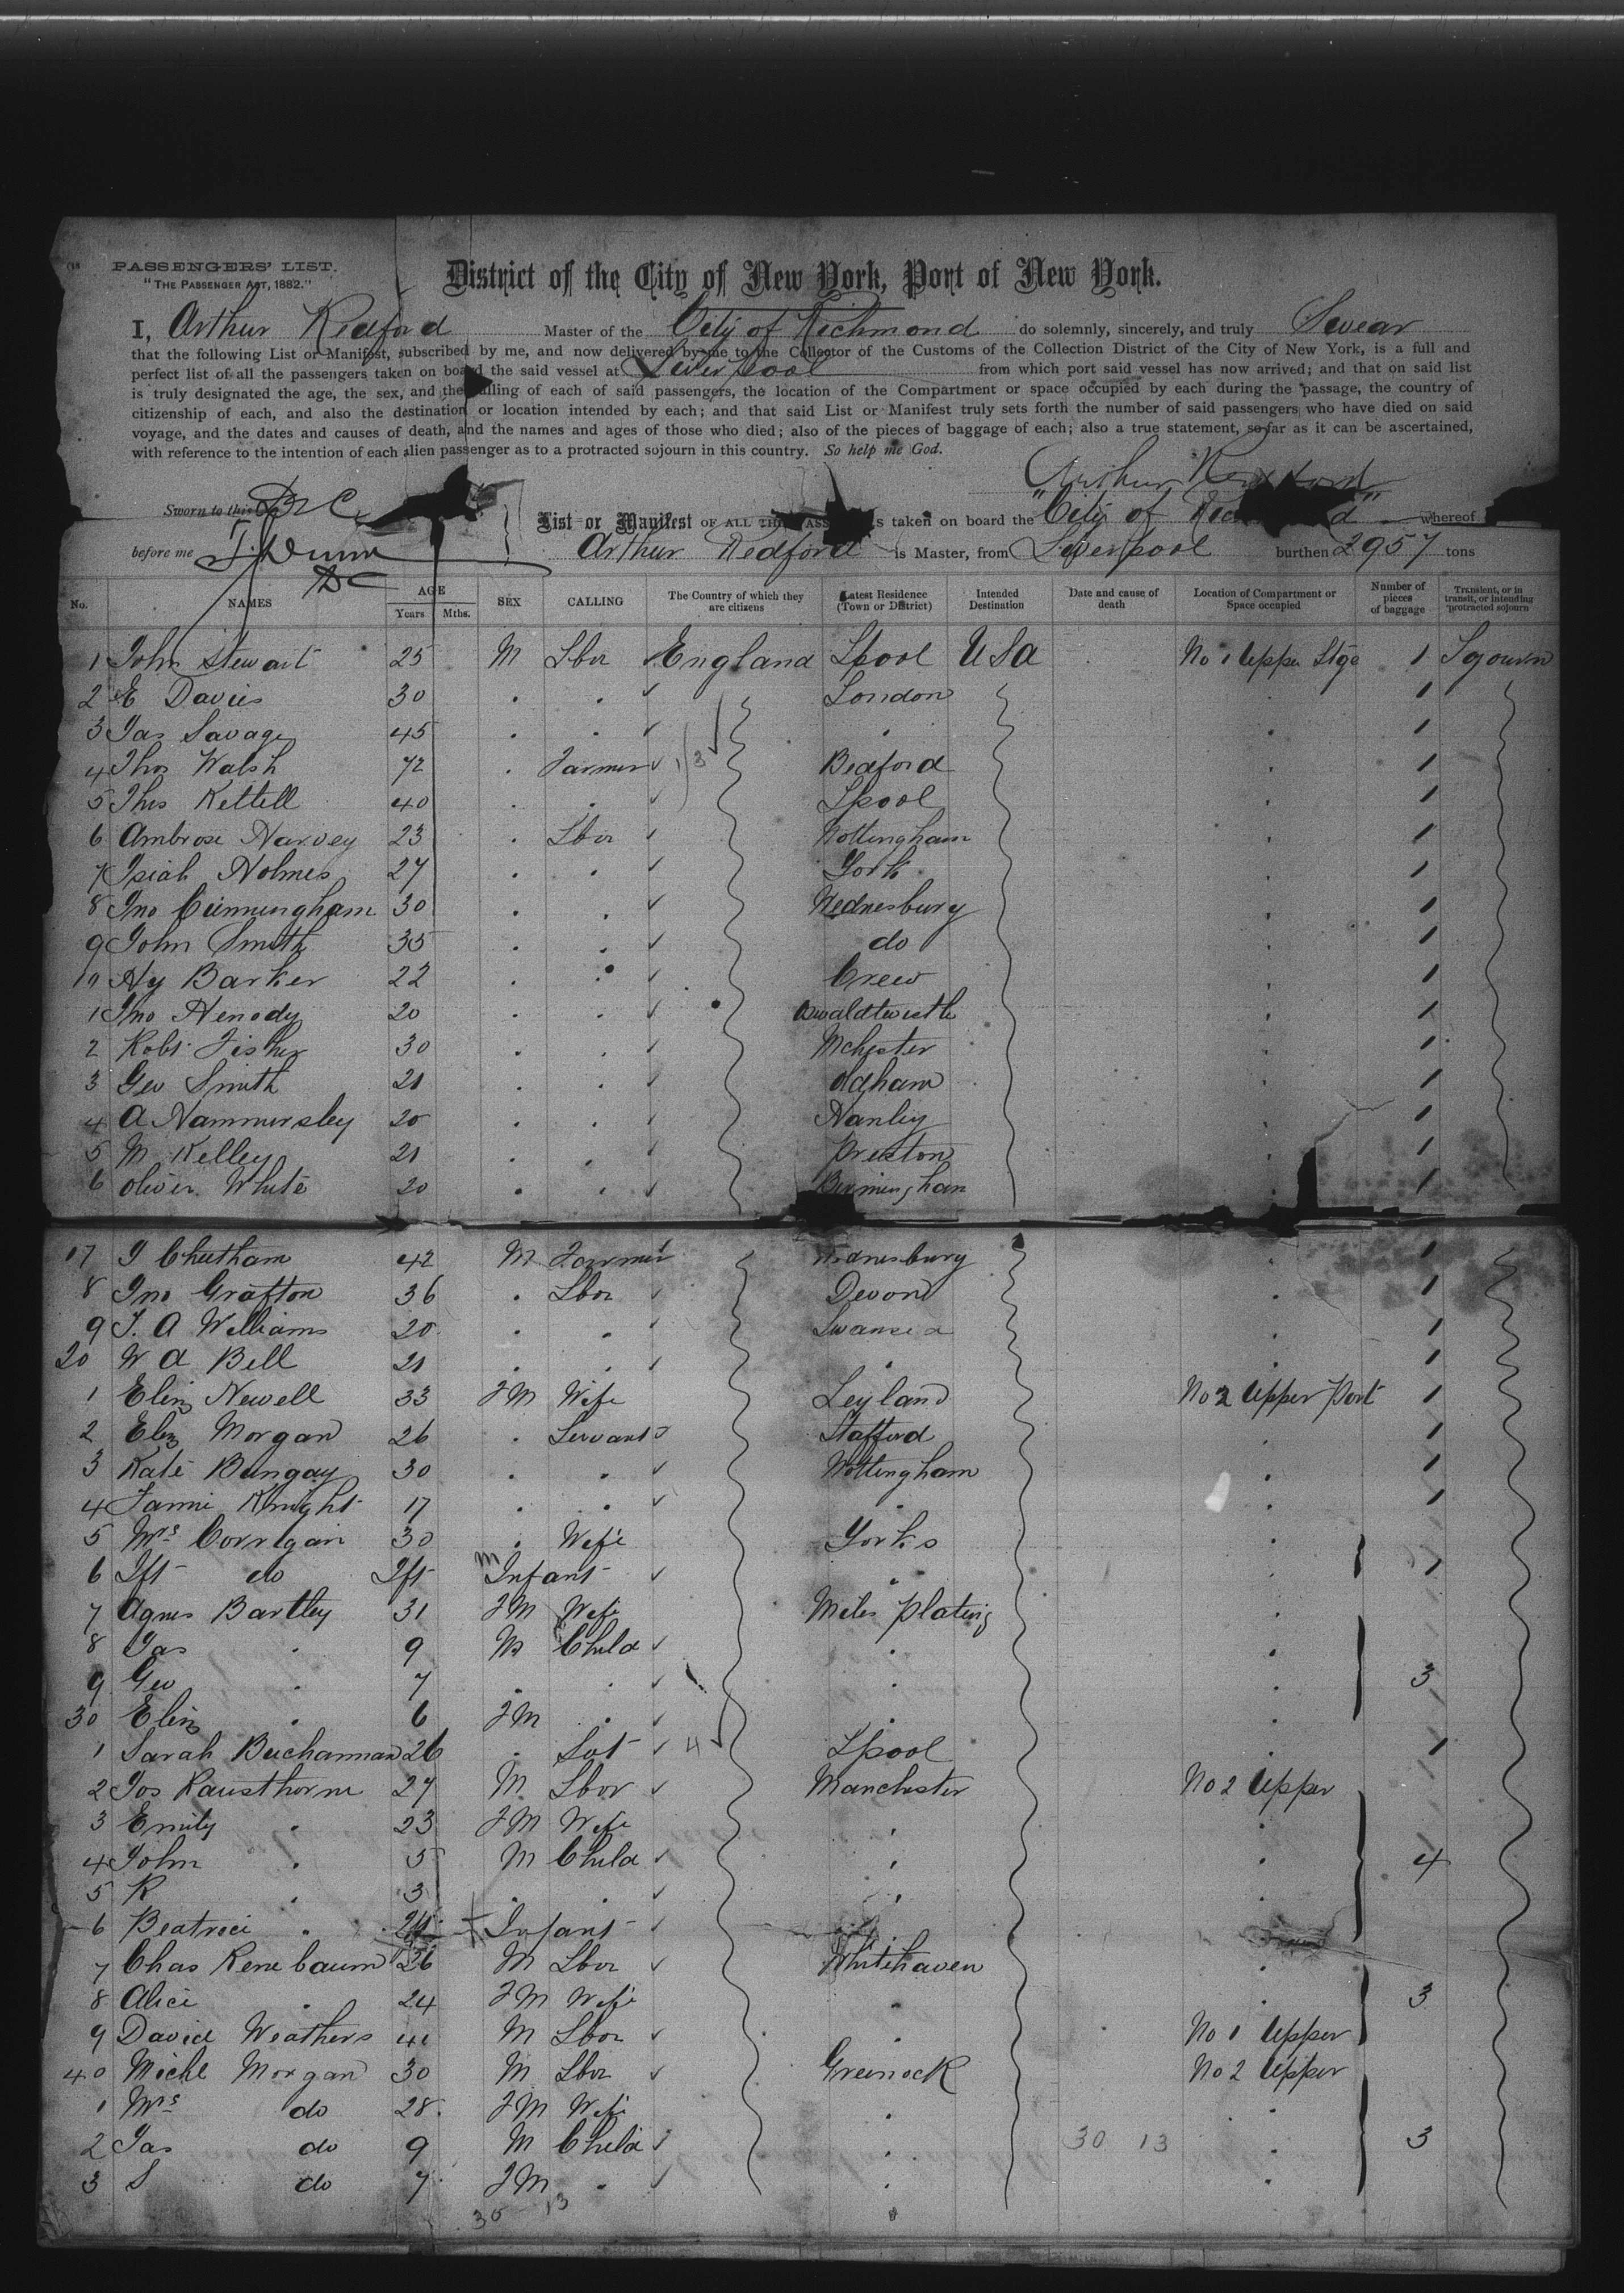 PASSENGERS' LIST.
"THE PASSENGER ACT, 1882."
District of the City of New York, Port of New York.
I, Arthur Redford Master of the City of Richmond do solemnly, sincerely, and truly Swear
that the following List or Manifest, subscribed by me, and now delivered by me to the Collector of the Customs of the Collection District of the City of New York, is a full and
perfect list of all the passengers taken on board the said vessel at Liverpool from which port said vessel has now arrived; and that on said list
is truly designated the age, the sex, and the calling of each of said passengers, the location of the Compartment or space occupied by each during the passage, the country of
citizenship of each, and also the destination or location intended by each; and that said List or Manifest truly sets forth the number of said passengers who have died on said
voyage, and the dates and causes of death, and the names and ages of those who died; also of the pieces of baggage of each; also a true statement, so far as it can be ascertained,
with reference to the intention of each alien passenger as to a protracted sojourn in this country. So help me God.
Arthur Redford
Sworn to this
before me
List or Manifest OF ALL THE PASS s taken on board the "City of d" whereof
Arthur Redford is Master, from Liverpool burthen 2957 tons
No. NAMES AGE Years Mths. SEX CALLING The Country of which they are citizens Latest Residence (Town or District) Intended Destination Date and cause of death Location of Compartment or Space occupied Number of pieces of baggage Transient, or in transit, or intending protracted sojourn
1 John Stewart 25 M Lbor England Lpool USa No 1 Upper Stge 1 Sojourn
2 E Davies 30 . . London . 1
3 Jas Savage 45 . . . . 1
4 Thos Walsh 72 . Farmer 13 Bedford . 1
5 Thos Kettell 40 . . Lpool . 1
6 Ambrose Harvey 23 . Lbor Nottingham . 1
7 Isiah Holmes 27 . . York . 1
8 Jno Cunningham 30 . . Wednesbury . 1
9 John Smith 35 . . do . 1
10 Hy Barker 22 . . Crew . 1
1 Jno Henody 20 . . . 1
2 Robt Fisher 30 . . Mchester . 1
3 Geo Smith 21 . . Oldham . 1
4 A Hammersley 20 . . Hanley . 1
5 M Kelley 21 . . Preston . 1
6 Oliver White 20 . . Birmingham . 1
17 J Cheetham 42 M Farmer . 1
8 Jno Grafton 36 . Lbor Devon . 1
9 J. A Williams 20 . . Swansea . 1
20 W A Bell 21 . . . . 1
1 Eliz Newell 33 FM Wife Leyland No 2 Upper Port 1
2 Eliz Morgan 26 . Servant Stafford . 1
3 Kate Bungay 30 . . Nottingham . 1
4 Fannie Knight 17 . . . . 1
5 Mrs Corrigan 30 . Wife Yorks .
6 Ift do Ift m Infant . . 1
7 Agnes Bartley 31 FM Wife Miles Plating .
8 Jas . 9 M Child . .
9 Geo . 7 . . . . 3
30 Eliz . 6 FM . . .
1 Sarah Buchannan 26 . 4 Lpool . 1
2 Jos Rausthorne 27 M Lbor Manchester No 2 Upper
3 Emily . 23 FM Wife . .
4 John . 5 M Child . . 4
5 R . 3 . . . .
6 Beatrice . Infant
7 Chas Renebaum 26 M Lbor Whitehaven .
8 Alice . 24 FM Wife . . 3
9 David Weathers M Lbor . No 1 Upper
40 Michl Morgan 30 M Lbor Greenock No 2 Upper
1 Mrs do 28 FM Wife . .
2 Jas do 9 M Child . 30 13 . 3
3 S do 7 FM . . .
30 13